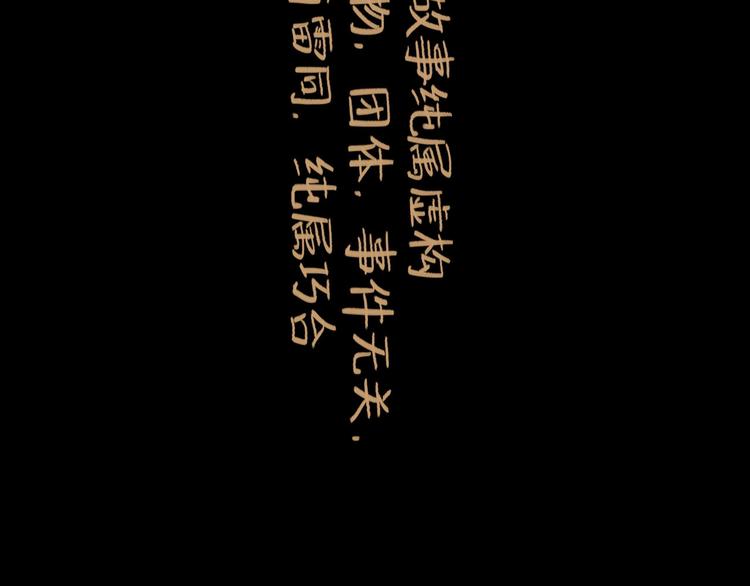 故事纯属虚构
物，团体，事件无关，
雷同，纯属巧合